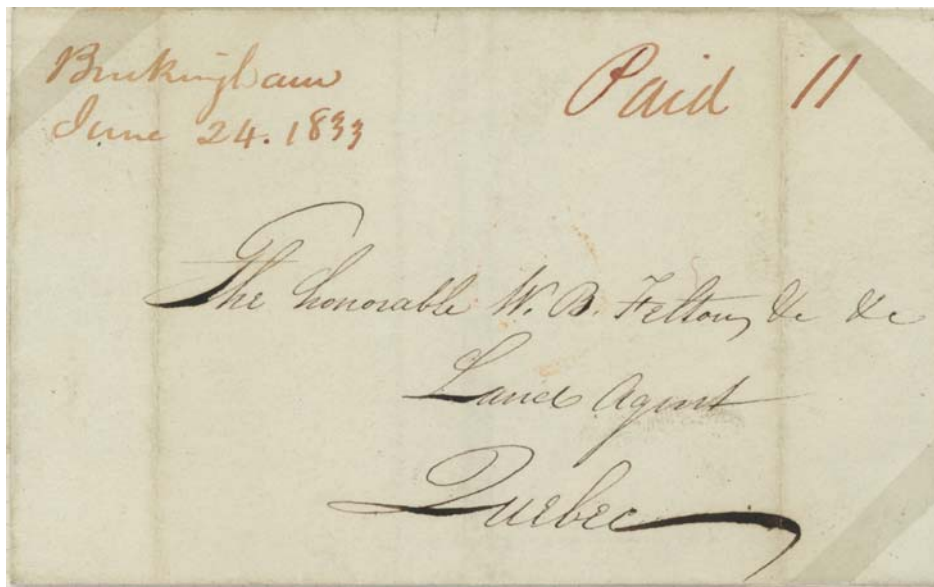 Buckingham
June 24. 1833
Paid 11
The honorable W. B. Felton, &c &c
Land Agent
Quebec